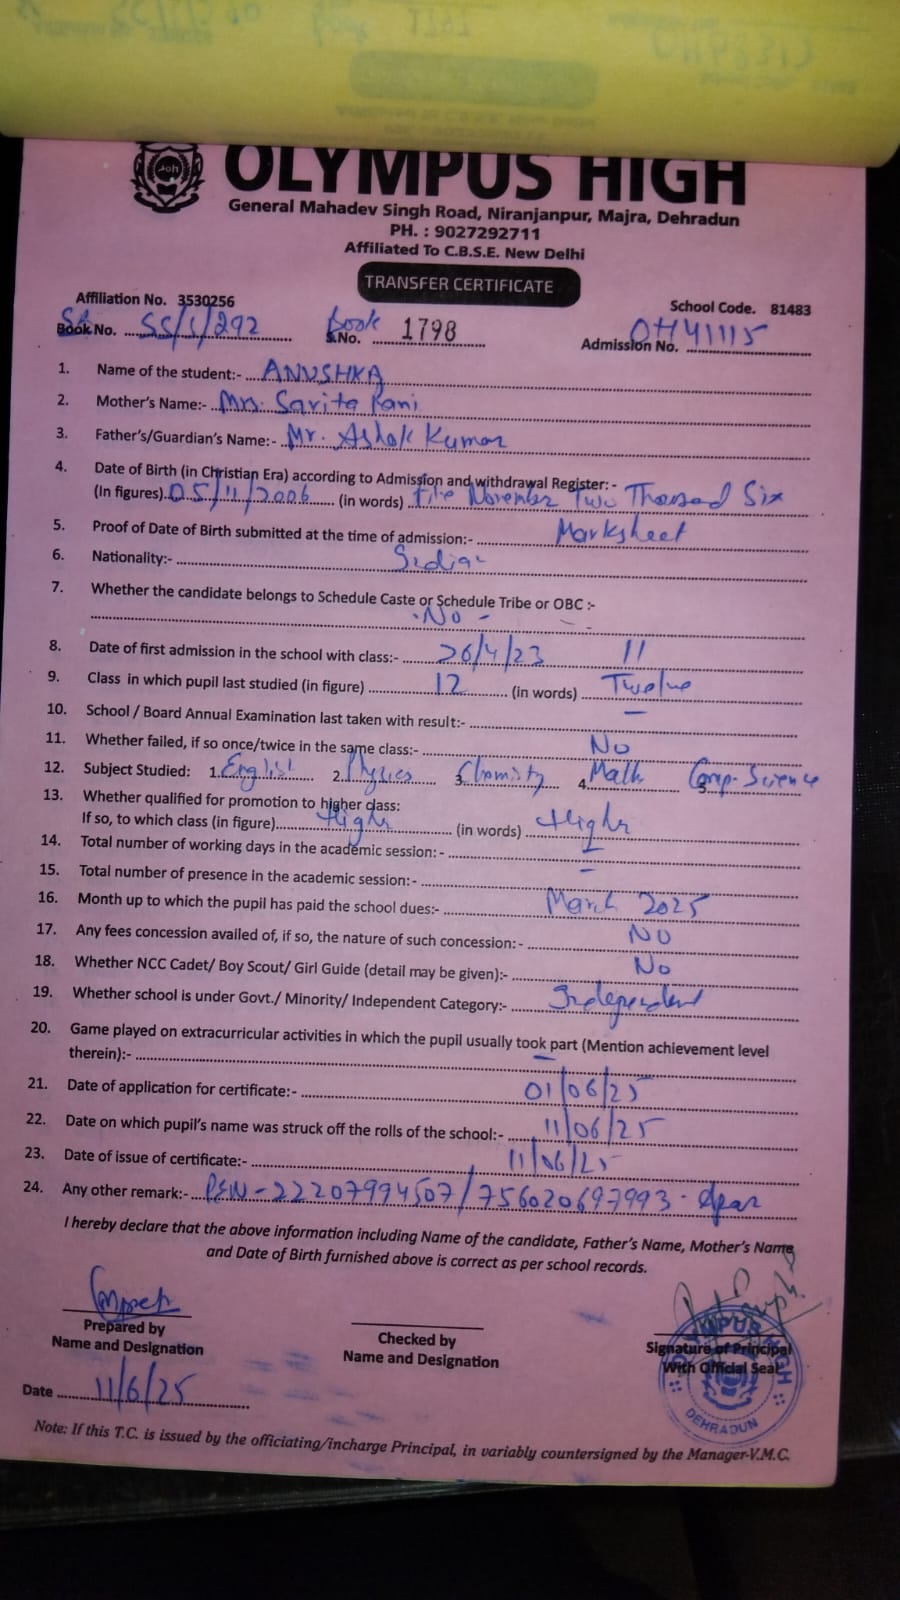 OLYMPUS HIGH
General Mahadev Singh Road, Niranjanpur, Majra, Dehradun
PH. : 9027292711
Affiliated To C.B.S.E. New Delhi
TRANSFER CERTIFICATE
Affiliation No. 3530256 School Code. 81483
Book No. SS/1/292 Book S.No. 1798 Admission No. OH41115
1. Name of the student:- ANUSHKA
2. Mother's Name:- Mrs. Savita Rani
3. Father's/Guardian's Name:- Mr. Ashok Kumar
4. Date of Birth (in Christian Era) according to Admission and withdrawal Register: -
(In figures) 05/11/2006 (in words) November Two Thousand Six
5. Proof of Date of Birth submitted at the time of admission:- Marksheet
6. Nationality:- Indian
7. Whether the candidate belongs to Schedule Caste or Schedule Tribe or OBC :-
- No -
8. Date of first admission in the school with class:- 26/4/23 11
9. Class in which pupil last studied (in figure) 12 (in words) Twelve
10. School / Board Annual Examination last taken with result:- —
11. Whether failed, if so once/twice in the same class:- No
12. Subject Studied: 1. English 2. Physics 3. Chemistry 4. Math 5. Comp. Science
13. Whether qualified for promotion to higher class:
If so, to which class (in figure) High (in words) High
14. Total number of working days in the academic session: - —
15. Total number of presence in the academic session:- —
16. Month up to which the pupil has paid the school dues:- March 2025
17. Any fees concession availed of, if so, the nature of such concession:- NO
18. Whether NCC Cadet/ Boy Scout/ Girl Guide (detail may be given):- No
19. Whether school is under Govt./ Minority/ Independent Category:- Independent
20. Game played on extracurricular activities in which the pupil usually took part (Mention achievement level
therein):- —
21. Date of application for certificate:- 01/06/25
22. Date on which pupil's name was struck off the rolls of the school:- 11/06/25
23. Date of issue of certificate:- 11/06/25
24. Any other remark:- PEN-22207994507/756020697993 - Apar
I hereby declare that the above information including Name of the candidate, Father's Name, Mother's Name
and Date of Birth furnished above is correct as per school records.
Prepared by
Name and Designation
Checked by
Name and Designation
Signature of Principal
With Official Seal
DEHRADUN
Date 11/6/25
Note: If this T.C. is issued by the officiating/incharge Principal, in variably countersigned by the Manager-V.M.C.